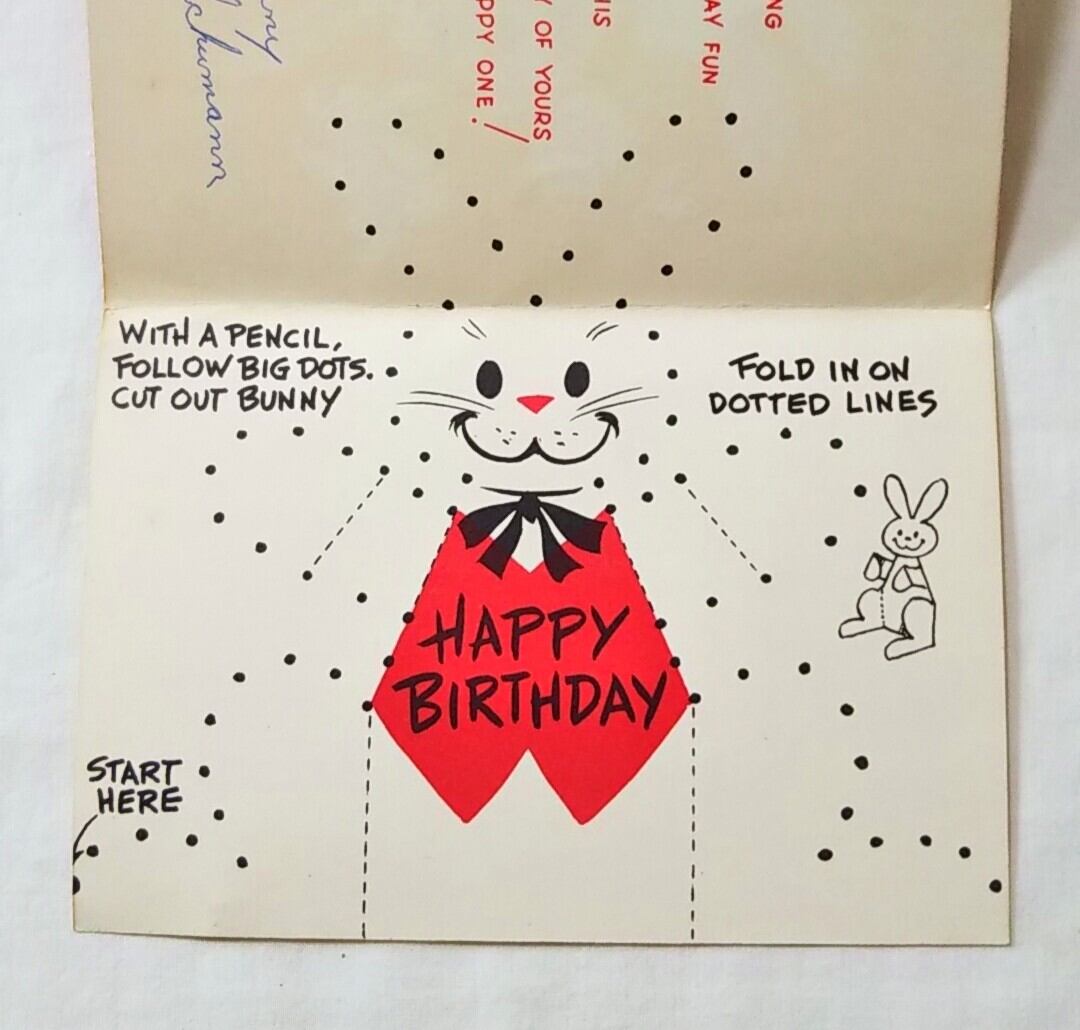 NG
AY FUN
HIS
Y OF YOURS
PPY ONE!
WITH A PENCIL,
FOLLOW BIG DOTS.
CUT OUT BUNNY
FOLD IN ON
DOTTED LINES
HAPPY
BIRTHDAY
START
HERE